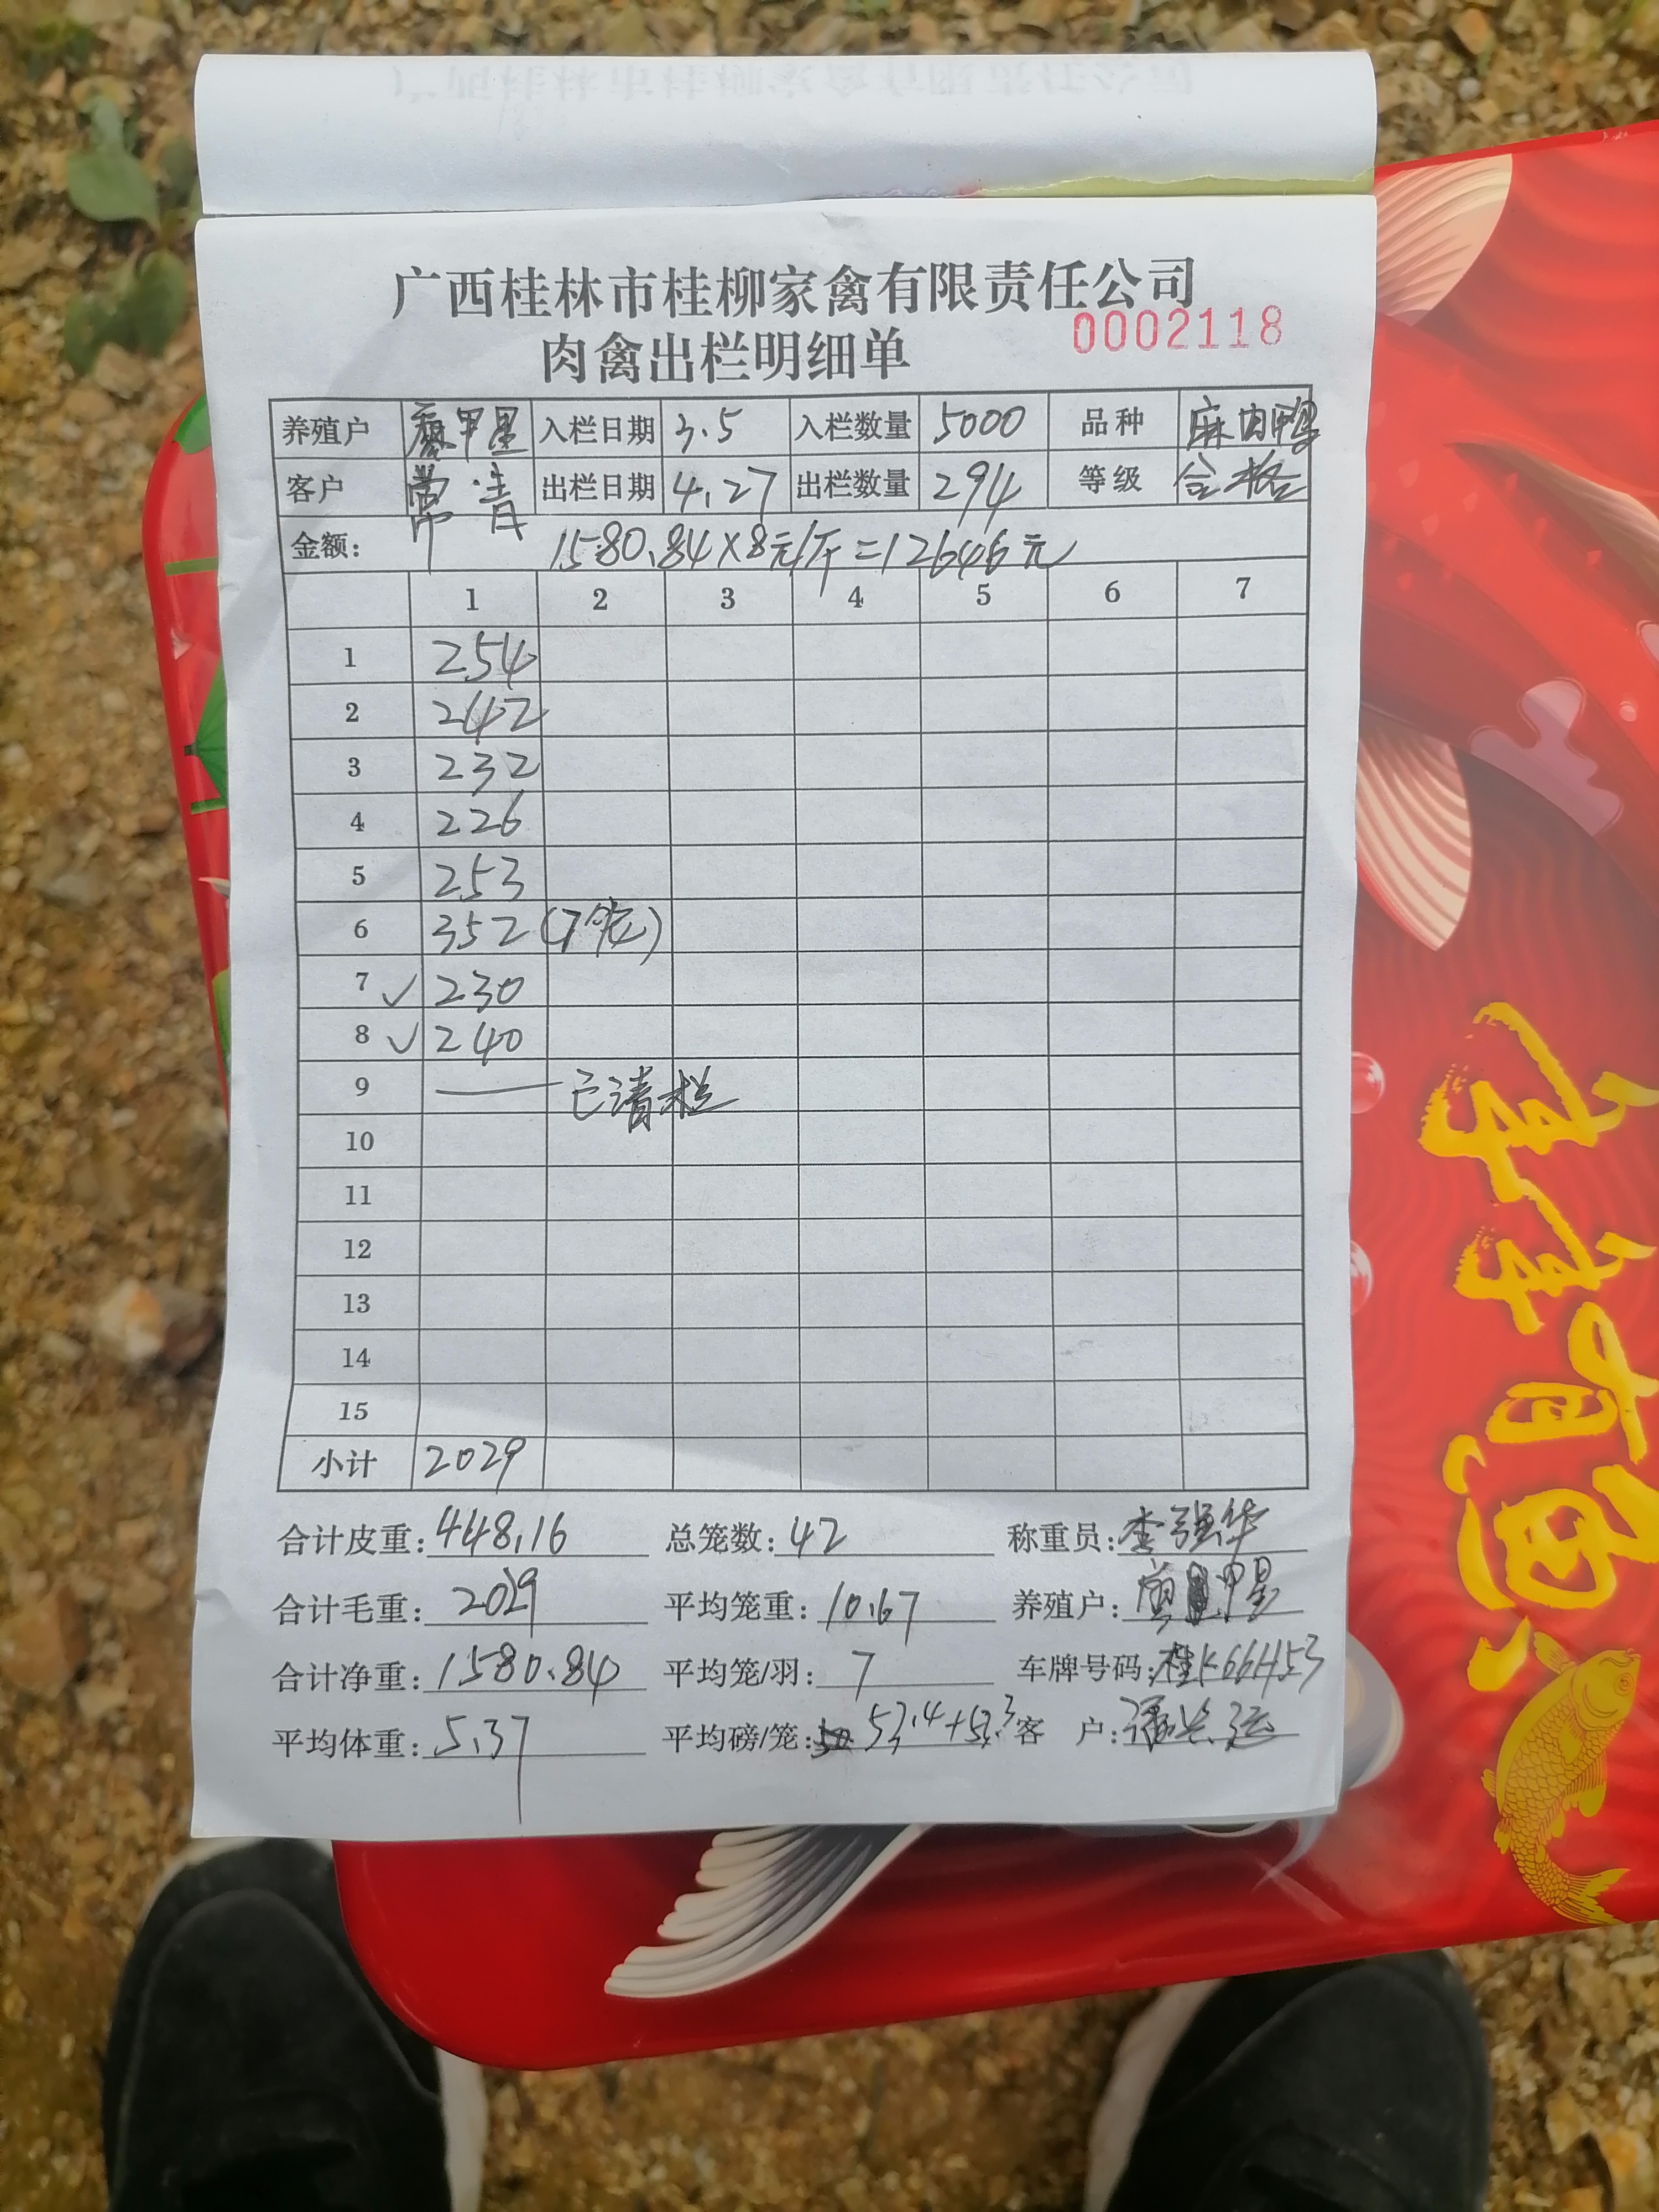 广西桂林市桂柳家禽有限责任公司
肉禽出栏明细单 0002118
养殖户 廖甲星 入栏日期 3.5 入栏数量 5000 品种 麻肉鸭
客户 常青 出栏日期 4.27 出栏数量 294 等级 合格
金额: 1580.84×8元/斤=12646元
1 2 3 4 5 6 7
1 254
2 242
3 232
4 226
5 253
6 352 (7个笼)
7 ✓ 230
8 ✓ 240
9 — 已清栏
10
11
12
13
14
15
小计 2029
合计皮重: 448.16 总笼数: 42 称重员: 李强华
合计毛重: 2029 平均笼重: 10.67 养殖户: 甲星
合计净重: 1580.84 平均笼/羽: 7 车牌号码: 桂K66H53
平均体重: 5.37 平均磅/笼: 53.4+53.3 客 户:
年年有鱼